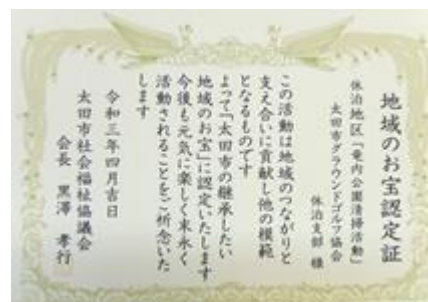 地域のお宝認定証
休泊地区「竜内公園清掃活動」
太田市グラウンドゴルフ協会
休泊支部 様
この活動は地域のつながりと
支え合いに貢献し他の模範
となるものです
よって「太田市の継承したい
地域のお宝」に認定いたします
今後も元気に楽しく末永く
活動されることをご祈念いた
します
令和三年四月吉日
太田市社会福祉協議会
会長 黒澤 孝行